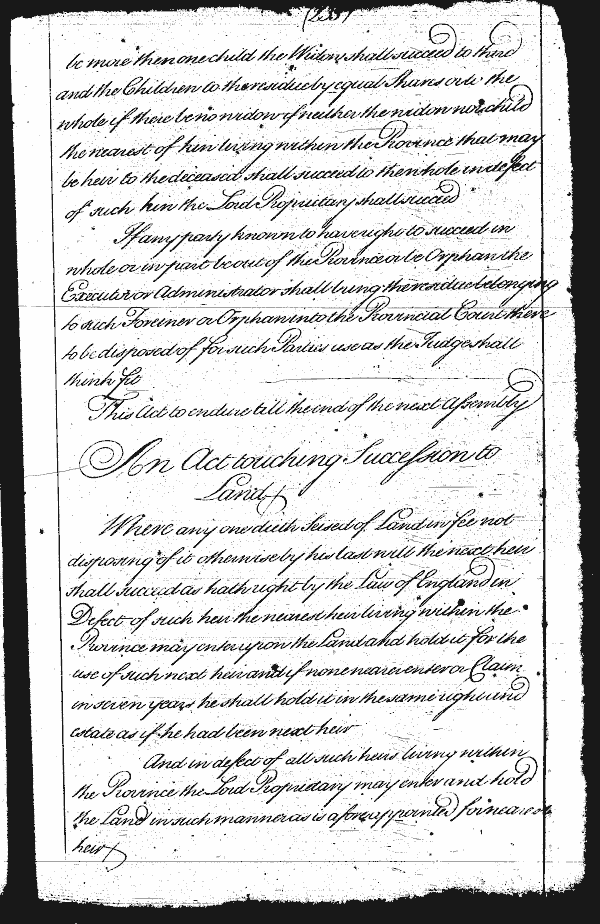 (233)
be more then one child the Widow shall succeed to third
and the Children to the residue by equal shares or to the
whole if there be no widow if neither the widow nor child
the nearest of kin living within the Province that may
be heir to the deceased shall succeed to the whole in defect
of such kin the Lord Proprietary shall succeed
If any party known to have right to succeed in
whole or in part be out of the Province or be Orphan the
Executor or Administrator shall bring the residue belonging
to such Foreiner or Orphan into the Provincial Court there
to be disposed of for such Parties use as the Judge shall
think fit
This Act to endure till the end of the next Assembly
An Act touching Succession to
Land
Where any one dieth Seised of Land in fee not
disposing of it otherwise by his last will the next heir
shall succeed as hath right by the Law of England in
Defect of such heir the nearest heir living within the
Province may enter upon the Land and hold it for the
use of such next heir and if none nearer enter or Claim
in seven years he shall hold it in the same right and
estate as if he had been next heir
And in defect of all such heirs living within
the Province the Lord Proprietary may enter and hold
the Land in such manner as is afore appointed for nearest
heir